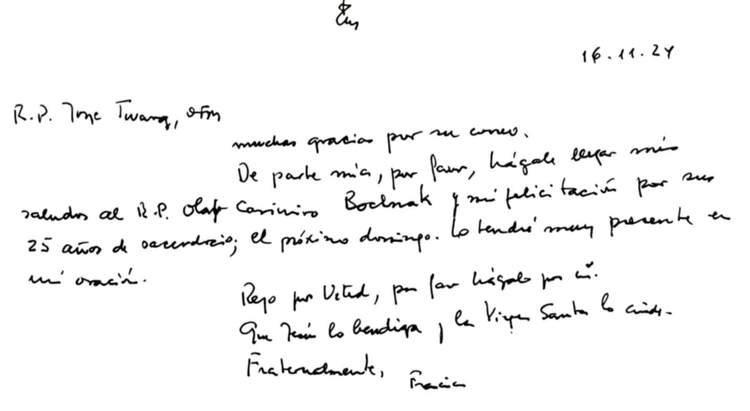 16.11.24
R.P. Jorge Twarog, ofm
muchas gracias por su correo.
De parte mía, por favor, hágale llegar mis
saludos al R.P. Olaf Casimiro Bochnak y mi felicitación por sus
25 años de sacerdocio; el próximo domingo. Lo tendré muy presente en
mi oración.
Rezo por Usted, por favor hágalo por mí.
Que Jesús lo bendiga y la Virgen Santa lo cuide.
Fraternalmente,